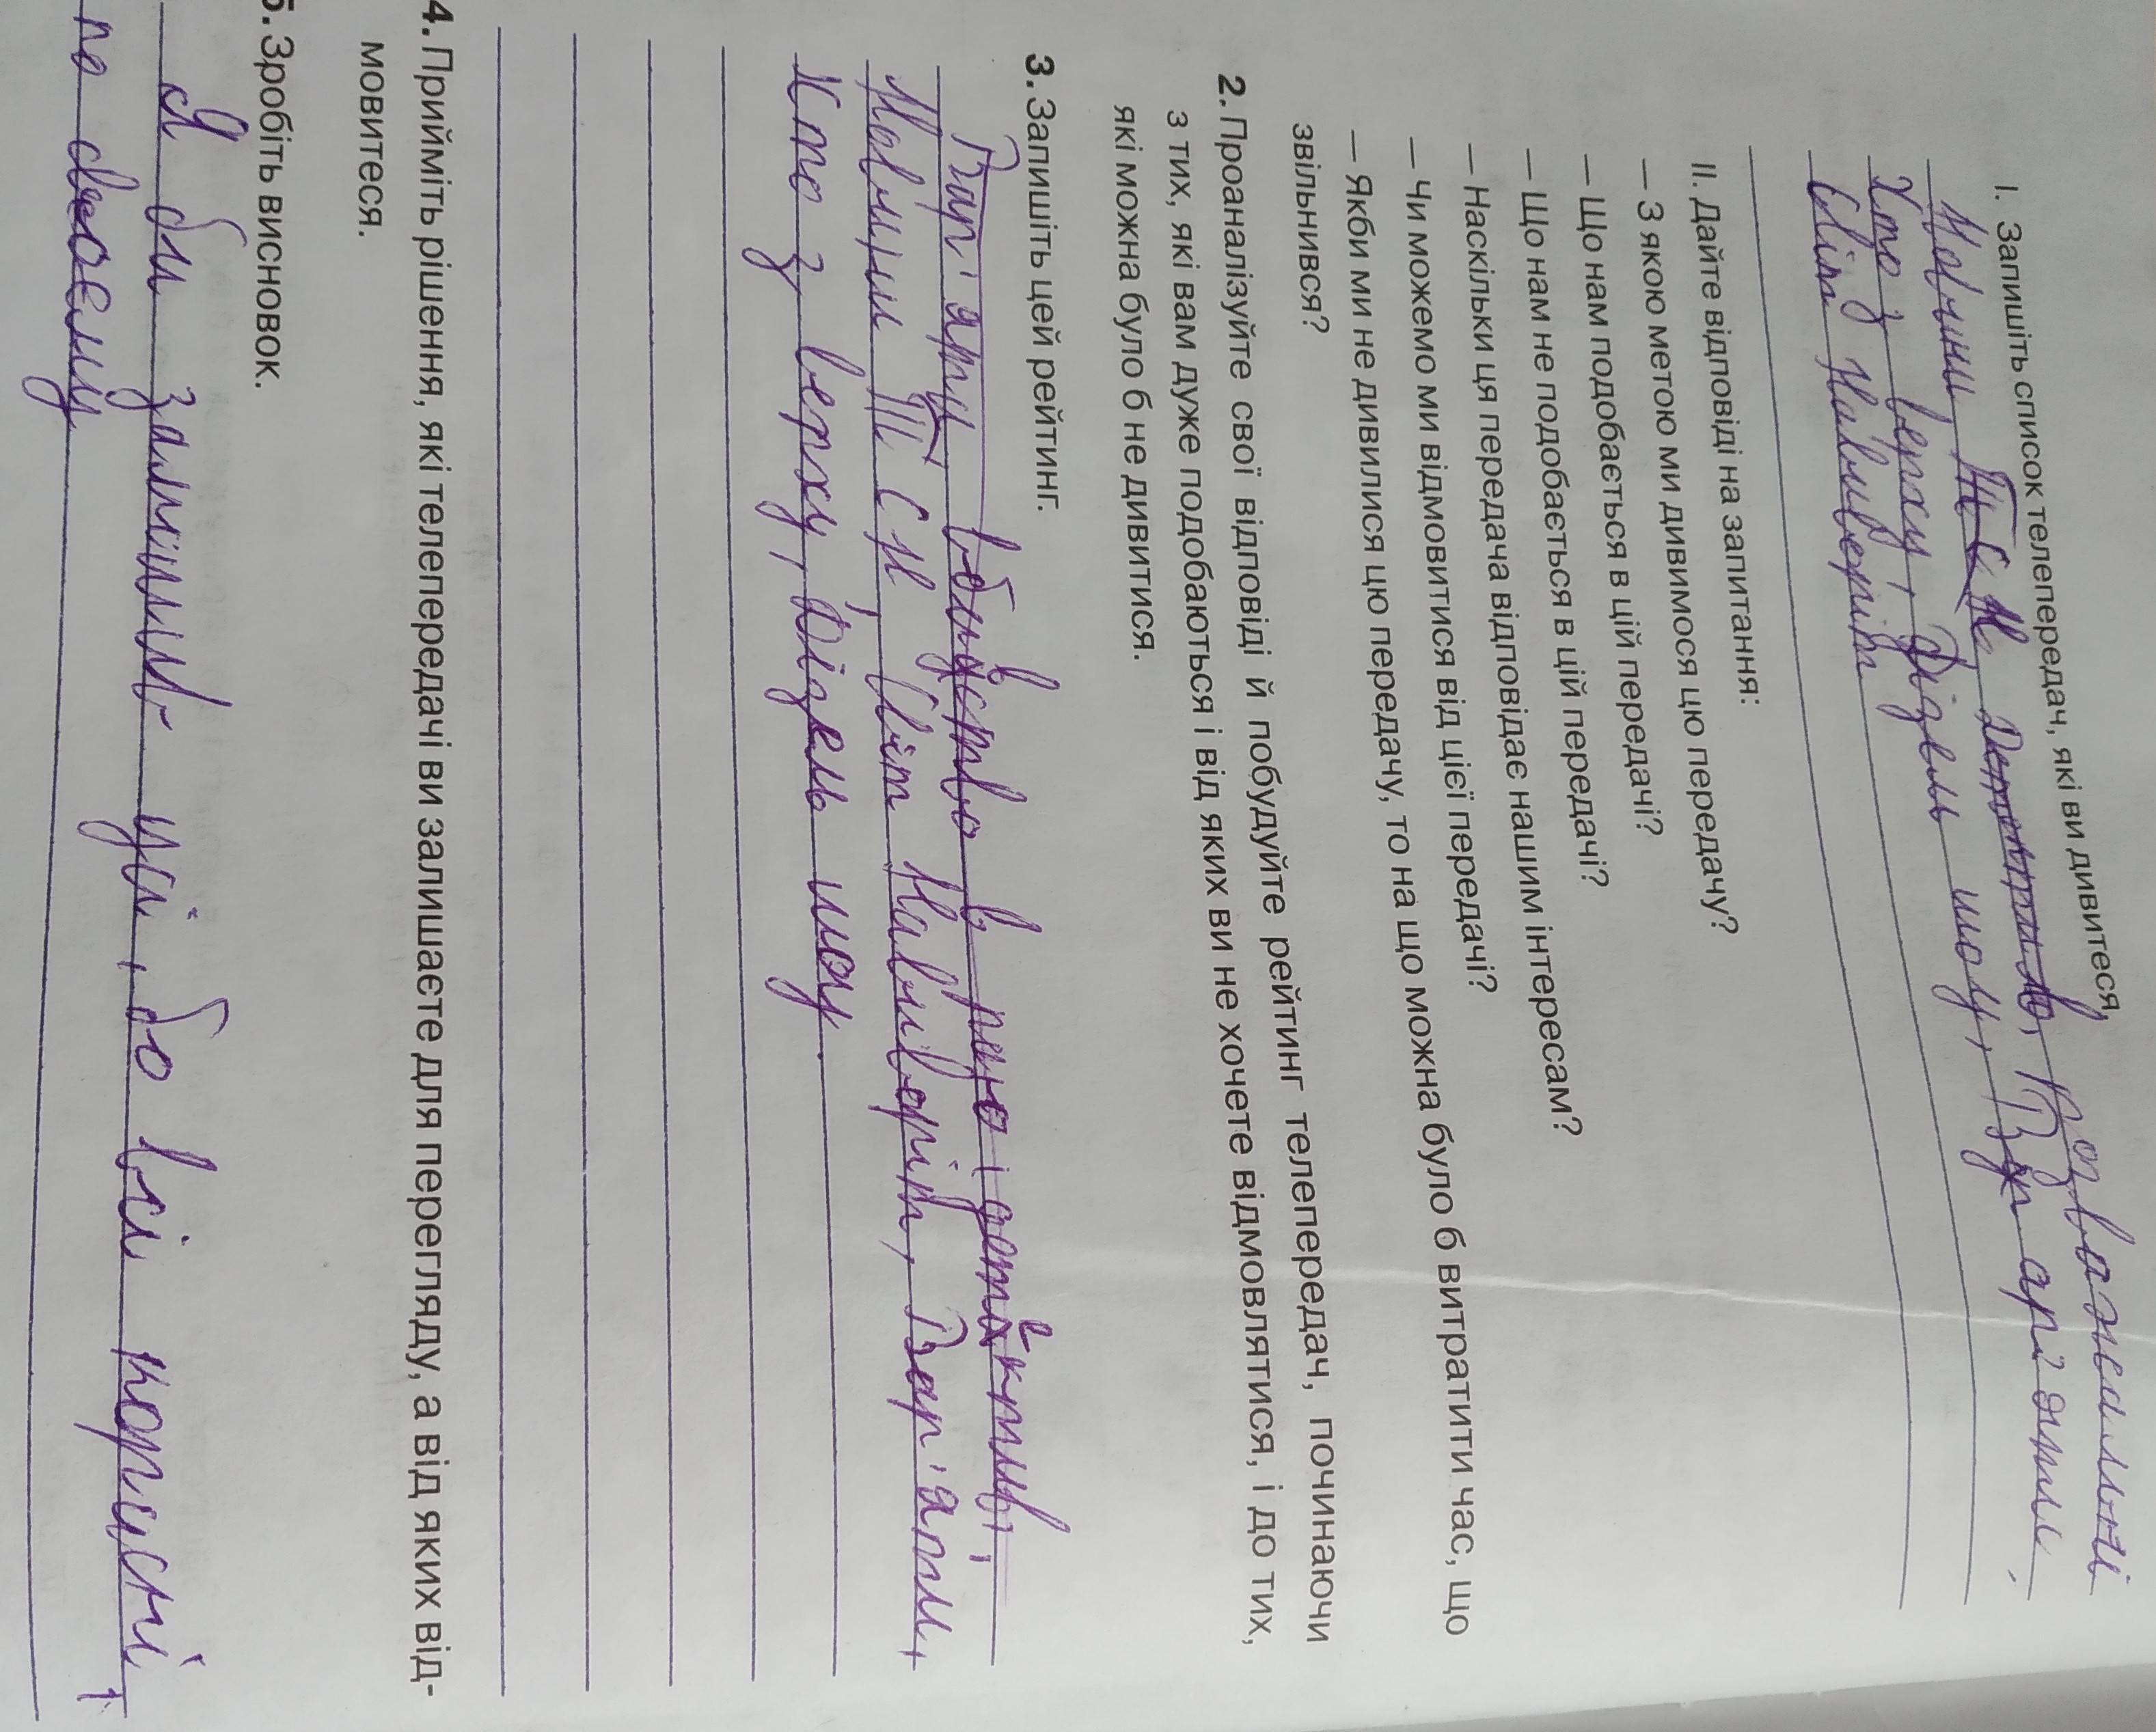 І. Запишіть список телепередач, які ви дивитеся,
Розважальні
Новини ТСН, Вар'яти,
Хто зверху, Дізель шоу,
Світ навиворіт
ІІ. Дайте відповіді на запитання:
— З якою метою ми дивимося цю передачу?
— Що нам подобається в цій передачі?
— Що нам не подобається в цій передачі?
— Наскільки ця передача відповідає нашим інтересам?
— Чи можемо ми відмовитися від цієї передачі?
— Якби ми не дивилися цю передачу, то на що можна було б витратити час, що
звільнився?
2. Проаналізуйте свої відповіді й побудуйте рейтинг телепередач, починаючи
з тих, які вам дуже подобаються і від яких ви не хочете відмовлятися, і до тих,
які можна було б не дивитися.
3. Запишіть цей рейтинг.
Вар'яти, вбивство в раю, детективі,
Новини ТСН, Світ навиворіт, Вар'яти,
Хто зверху, Дізель шоу
4. Прийміть рішення, які телепередачі ви залишаєте для перегляду, а від яких від-
мовитеся.
5. Зробіть висновок.
Я би залишив усі, бо всі корисні
по своєму